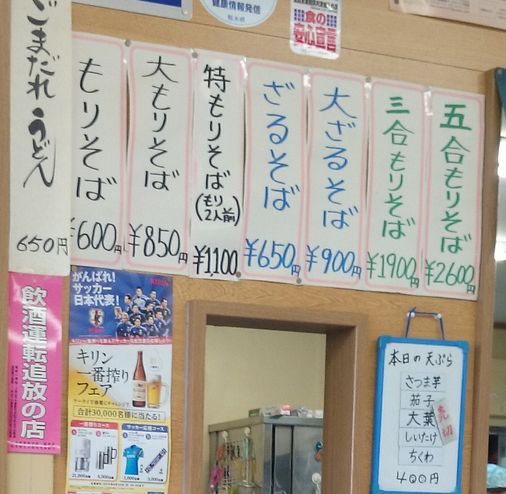 五合もりそば
¥2600円
三合もりそば
¥1900円
大ざるそば
¥900円
ざるそば
¥650円
特もりそば
(もり2人前)
¥1,100
大もりそば
¥850円
もりそば
¥600円
ごまだれうどん
650円
健康情報発信
栃木県
食の
安心宣言
飲酒運転追放の店
がんばれ!
サッカー
日本代表!
キリン
一番搾り
フェア
合計30,000名様に当たる!
本日の天ぷら
さつま芋
茄子
大葉
しいたけ
ちくわ
400円